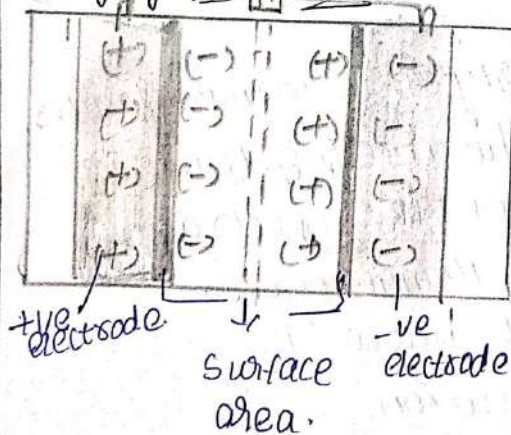 (+) (-) (+) (-)
(+) (-) (+) (-)
(+) (-) (+) (-)
(+) (-) (+) (-)
+ve electrode.
Surface area.
-ve electrode